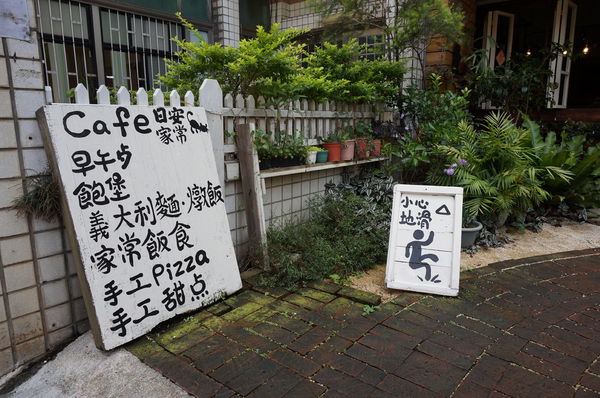 Cafe日安家常
早午鸟
飽堡
義大利麵·燉飯
家常飯食
手工Pizza
手工甜点
小心
地滑